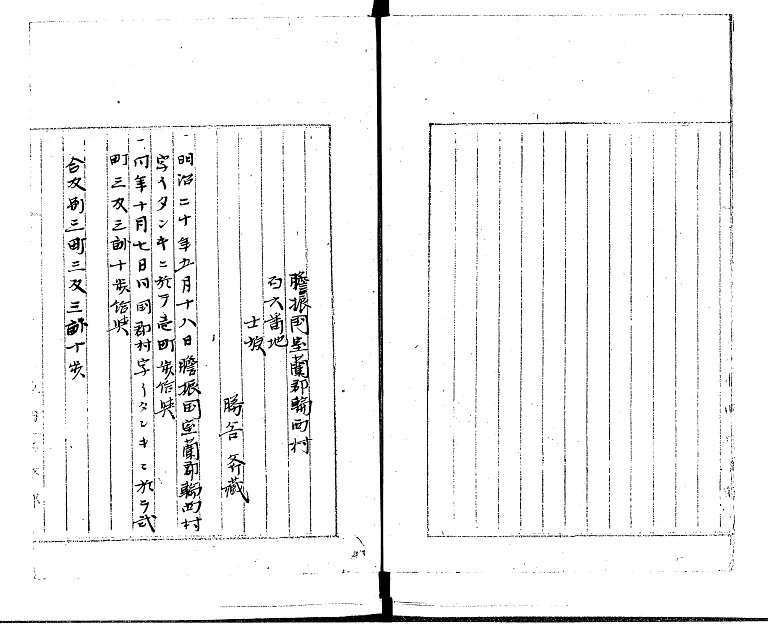 膽振国室蘭郡輪西村
百六番地
士族
勝吝斧藏
一明治二十年五月十八日膽振国室蘭郡輪西村
字イタンキニ於テ壱町歩信與
一同年十月七日同国郡村字イタンキニ於テ弐
町三反三畝十歩信與
合反別三町三反三畝十歩